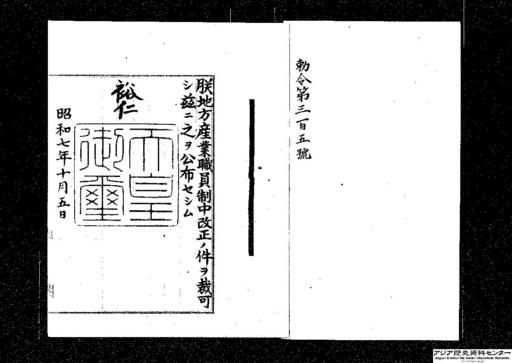 勅令第三百五號
朕地方産業職員制中改正ノ件ヲ裁可
シ茲ニ之ヲ公布セシム
裕仁
天皇
御璽
昭和七年十月五日
アジア歴史資料センター
Japan Center for Asian Historical Records